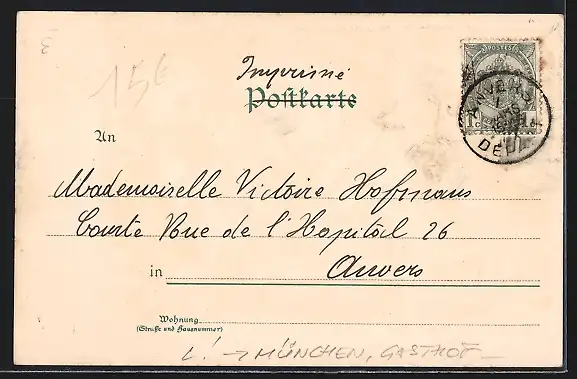 15€
Imprimé
Postkarte
POSTES
1c 1c
ANVERS
DÉPART
An
Mademoiselle Victoire Hofmans
Courte Rue de l'Hopital 26
in Anvers
Wohnung
(Straße und Hausnummer)
L! → MÜNCHEN, GASTHOF